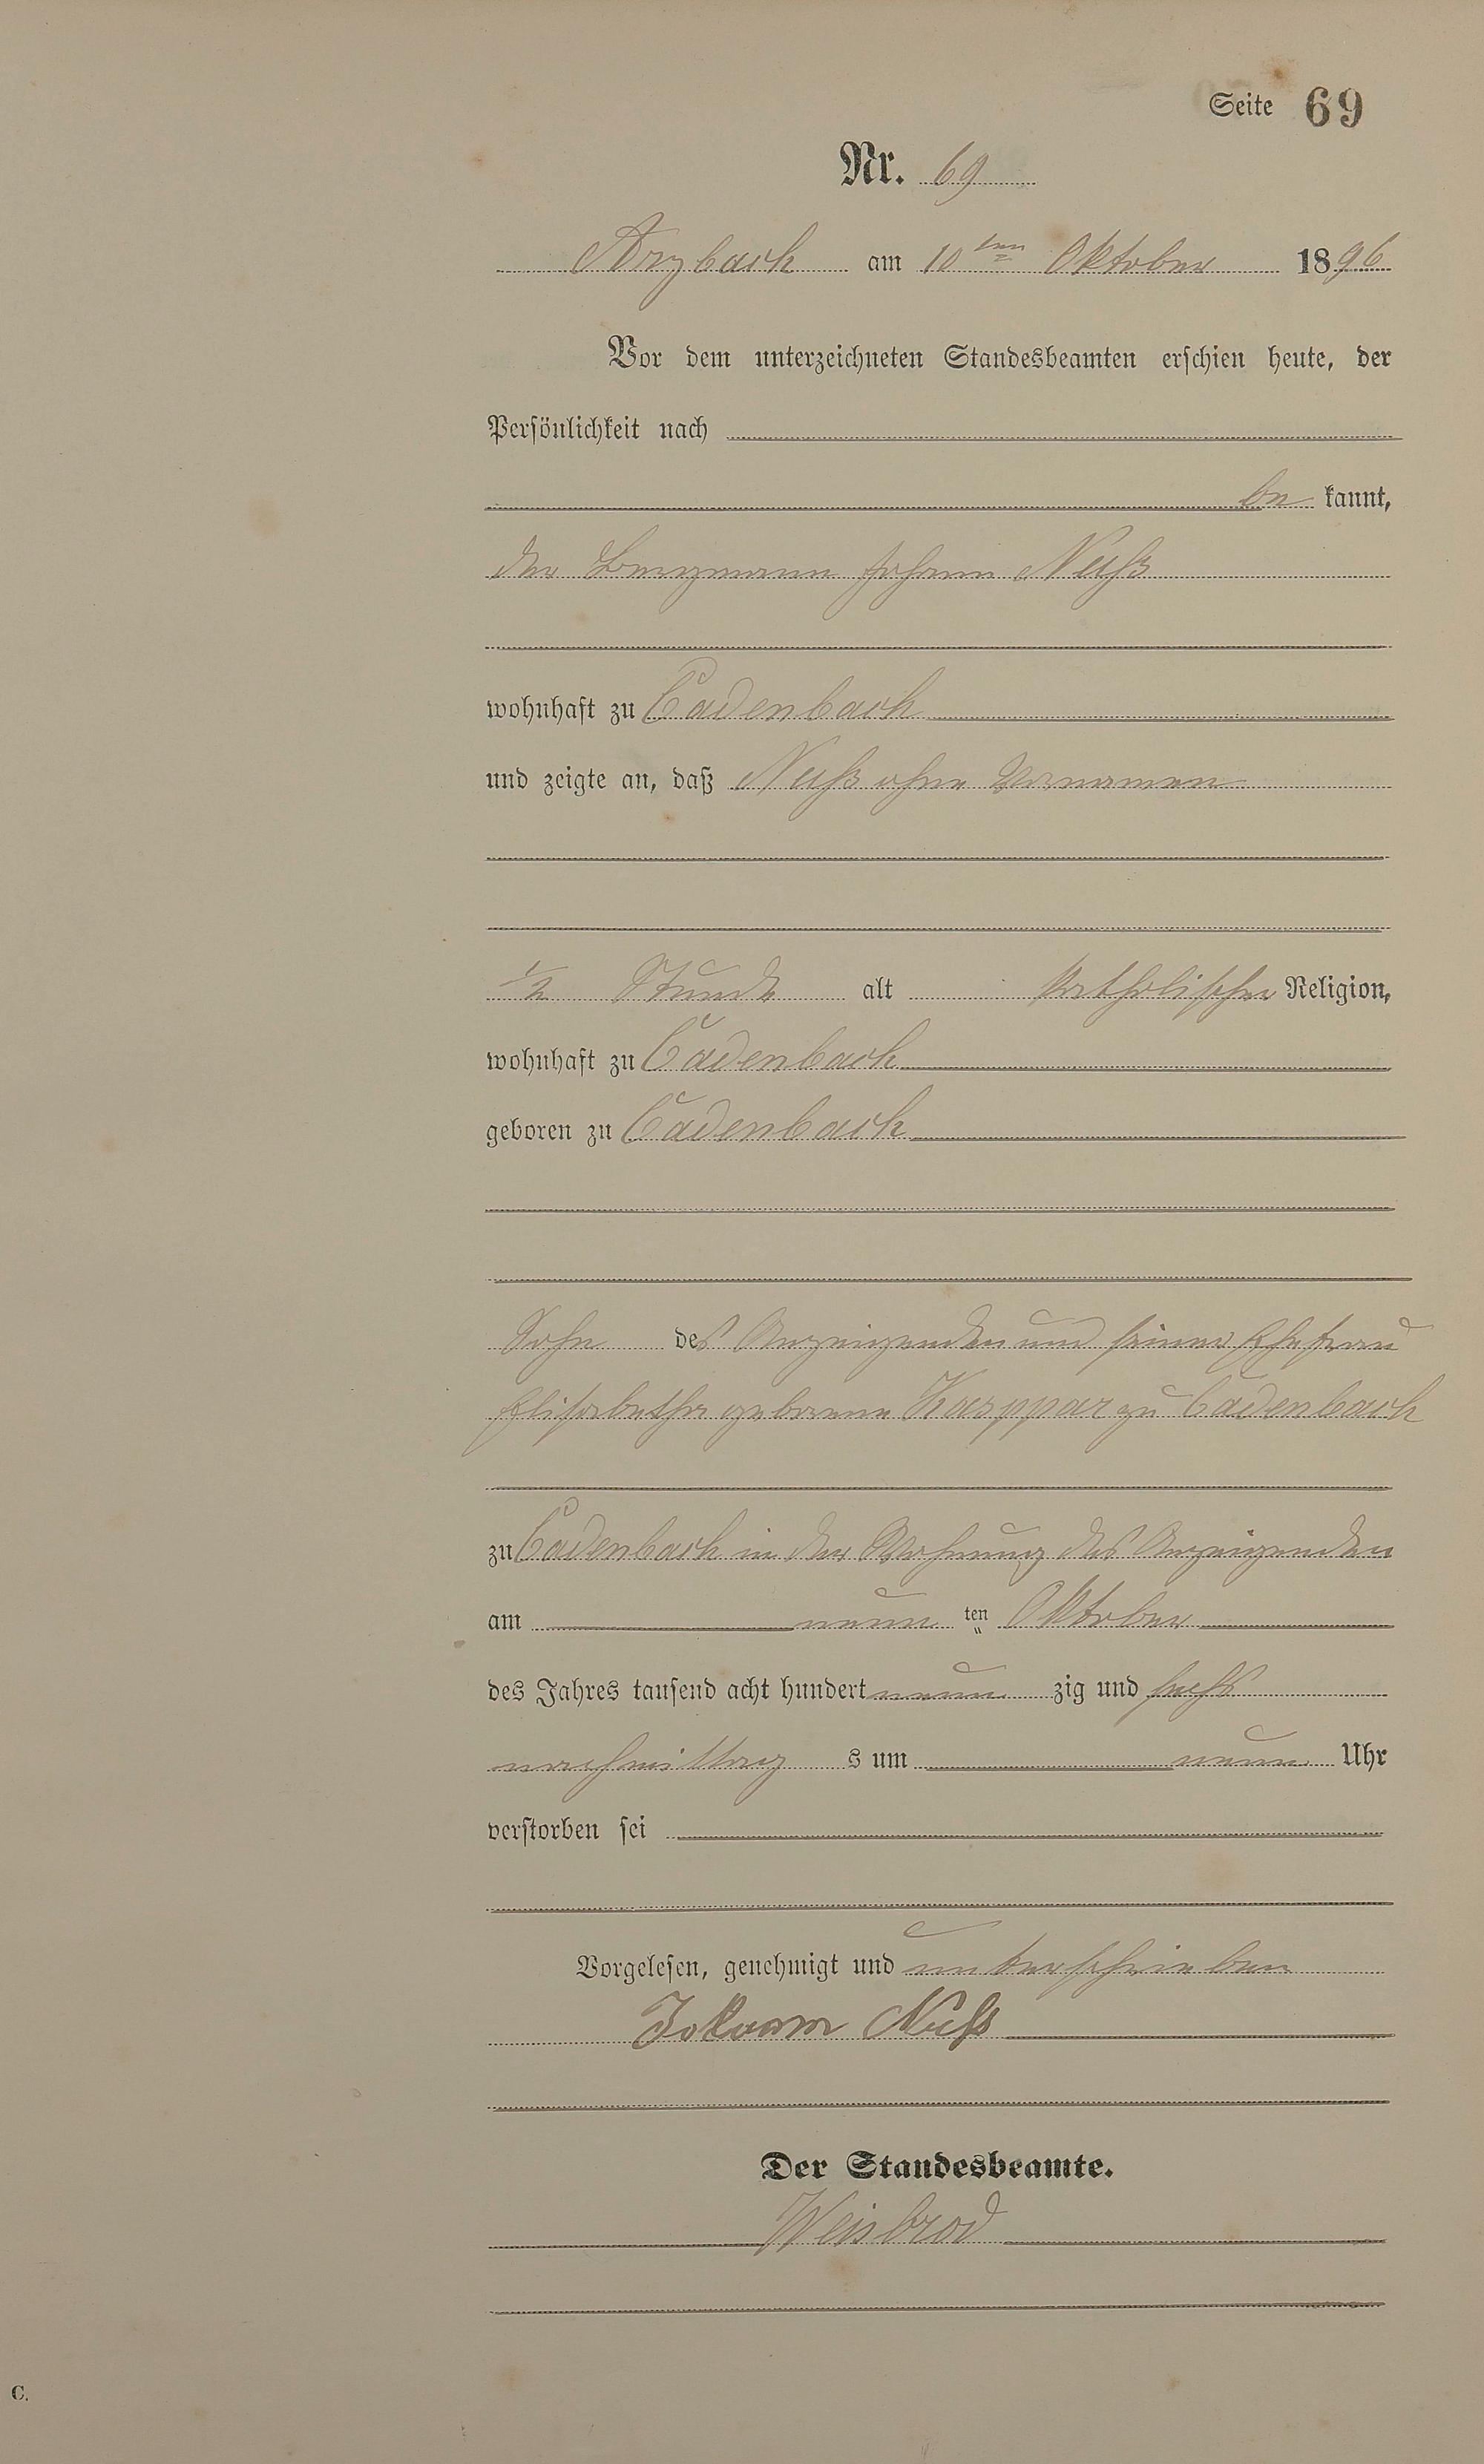 Seite 69
Nr. 69
Arzbach am 10ten Oktober 1896
Vor dem unterzeichneten Standesbeamten erschien heute, der
Persönlichkeit nach
be kannt,
der Bergmann Johann Nuß
wohnhaft zu Cadenbach
und zeigte an, daß Nuß ohne Vornamen
1/2 Stunde alt katholischer Religion,
wohnhaft zu Cadenbach
geboren zu Cadenbach
Sohn des Anzeigenden und seiner Ehefrau
Elisabetha geborene Kasppar zu Cadenbach
zu Cadenbach in der Wohnung des Anzeigenden
am neun ten Oktober
des Jahres tausend acht hundert neun zig und sechs
nachmittag s um neun Uhr
verstorben sei
Vorgelesen, genehmigt und unterschrieben
Johann Nuß
Der Standesbeamte.
Weisbrod
C.